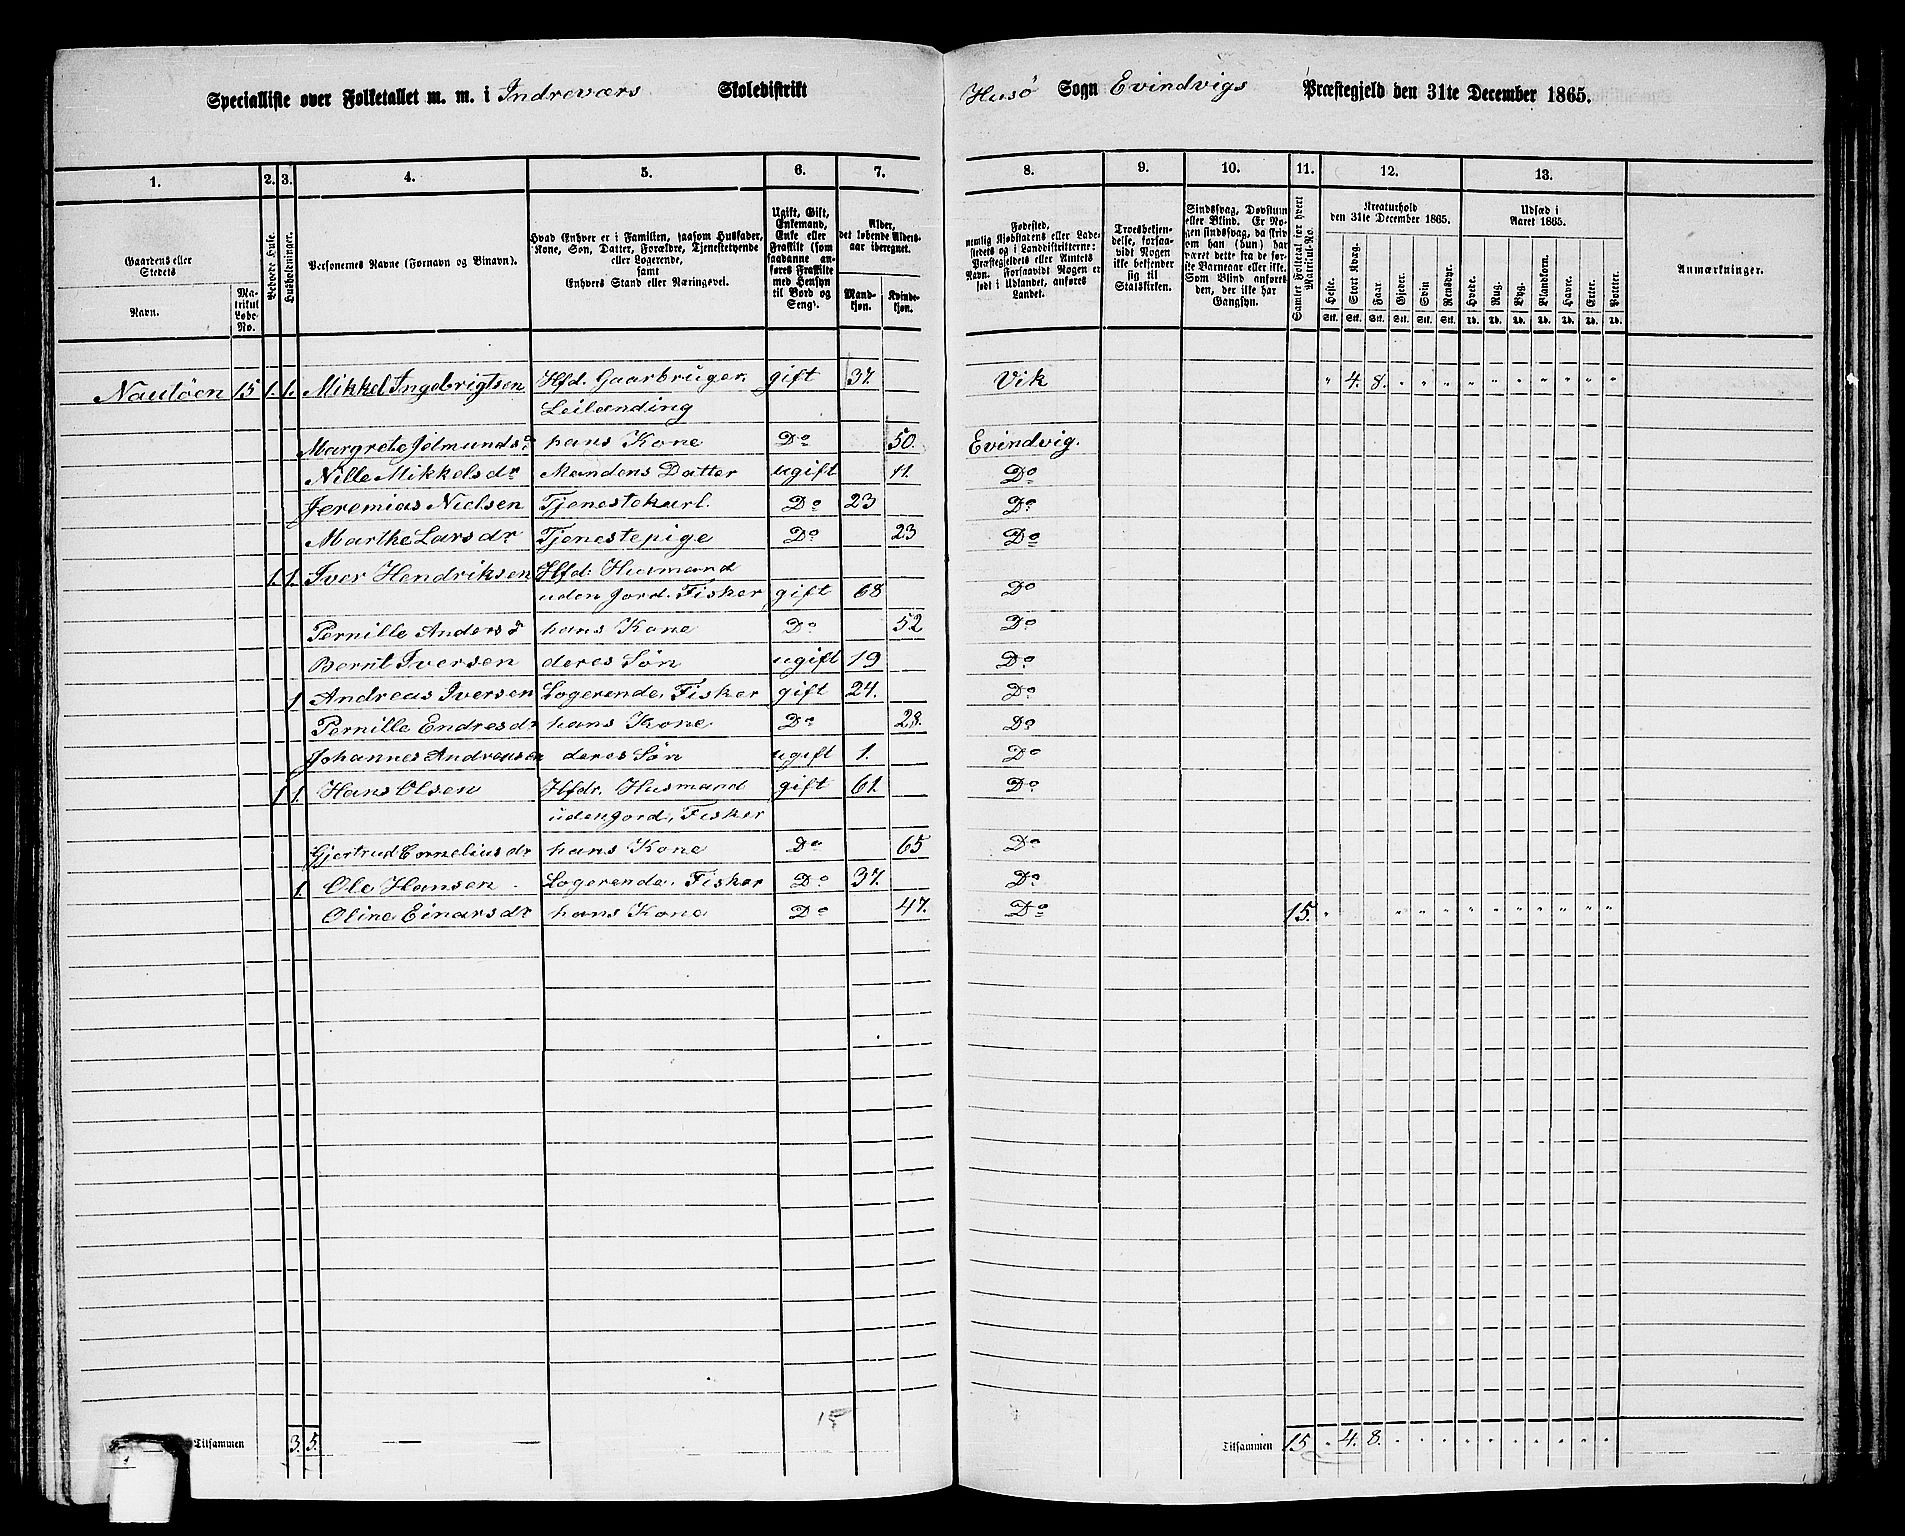 Specialliste over Folketallet m. m. i Indreværs Skoledistrikt Husø Sogn Evindvigs Præstegjeld den 31te December 1865.
1. 2. 3. 4. 5. 6. 7. 8. 9. 10. 11. 12. 13.
Gaardens eller Stedets
Navn.
Matrikul Løbe-No.
Beboede Huse.
Husholdninger.
Personernes Navne (Fornavn og Binavn).
Hvad Enhver er i Familien, saasom Husfader, Kone, Søn, Datter, Forældre, Tjenestetyende eller Logerende,
samt
Enhvers Stand eller Næringsvei.
Ugift, Gift, Enkemand, Enke eller Fraskilt (som saadanne anføres Fraskilte med Hensyn til Bord og Seng).
Alder, det løbende Aldersaar iberegnet.
Mandkjøn.
Kvindekjøn.
Fødested, nemlig Kjøbstadens eller Ladestedets og i Landdistrikterne: Præstegjeldets eller Amtets Navn. Forsaavidt Nogen er født i Udlandet, anføres Landet.
Troesbekjendelse, forsaavidt Nogen ikke bekjender sig til Statskirken.
Sindssvag, Døvstum eller Blind. Er Nogen sindssvag, da skrives om han (hun) har været dette fra de første Barneaar eller ikke. Som Blind anføres den, der ikke har Gangsyn.
Samlet Folketal for hvert Matrikul-No.
Kreaturhold den 31te December 1865.
Heste. Stort Kvæg. Faar. Gjeder. Svin. Rensdyr.
Udsæd i Aaret 1865.
Hvede. Rug. Byg. Blandkorn. Havre. Erter. Poteter.
Anmærkninger.
Stk. Stk. Stk. Stk. Stk. Stk. Td. Td. Td. Td. Td. Td. Td.
15 1. 1. Mikkel Ingebrigtsen Hfd. Gaarbruger. gift 37. Vik " 4. 8. " " " " " " " " " "
Leilænding
Margrete hans Kone Do 50. Evindvig.
Nille Mikkelsdr Mandens Datter ugift 11. Do
Jeremias Nielsen Tjenestekarl. Do 23 Do
Marthe Larsdr Tjenestepige Do 23 Do
1. 1. Iver Hendriksen Hfd. Husmand
uden Jord. Fisker gift 68 Do
Pernille Andersd hans Kone Do 52 Do
Bernt Iversen deres Søn ugift 19 Do
1 Andreas Iversen Logerende, Fisker gift 24. Do
Pernille Endresdr hans Kone Do 28. Do
Johannes Andreasen deres Søn ugift 1. Do
1 1. Hans Olsen Hfdr. Husmand gift 61. Do
uden jord, Fisker
Gjertrud Corneliusdr hans Kone Do 65 Do
1. Ole Hansen Logerende, Fisker Do 37. Do
Oline Einarsdr hans Kone Do 47. Do 15. " " " " " " " " " " "
15
Tilsammen 3. 5. — — Tilsammen 15 " 4. 8. " " " " " " " " " "